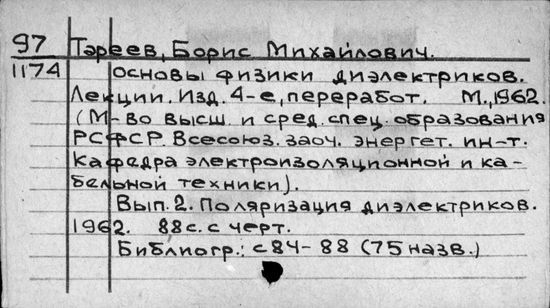 97 Тареев, Борис Михайлович.
1174 Основы физики диэлектриков.
Лекции. Изд. 4-е, переработ. М., 1962.
(М-во высш. и сред. спец. образования
РСФСР. Всесоюз. заоч. энергет. ин-т.
Кафедра электроизоляционной и ка-
бельной техники).
Вып. 2. Поляризация диэлектриков.
1962. 88 с. с черт.
Библиогр.: с 84-88 (75 назв.)